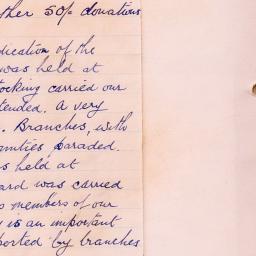 ther 50/- donations
dication of the
was held at
ocking carried our
tended. A very
. Branches, with
amities paraded.
s held at
ard was carried
s members of our
y is an important
ported by branches